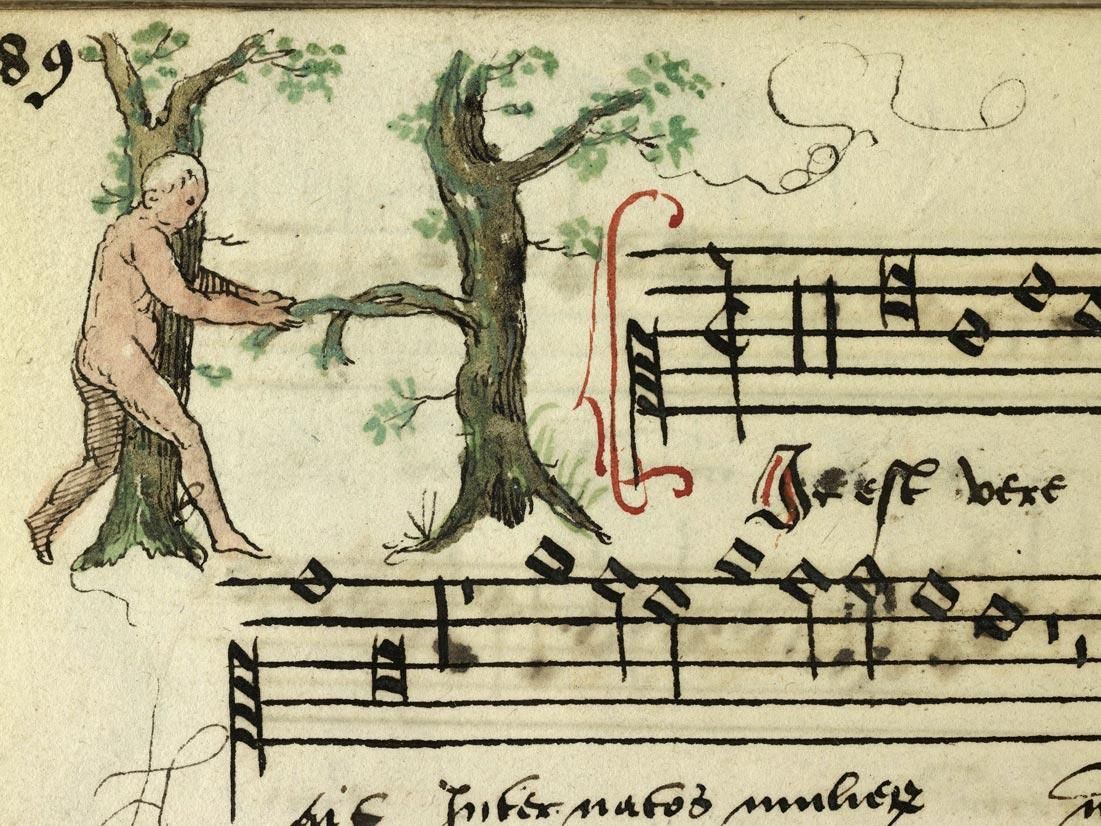 89
Ic est vere
ait Inter natos mulieꝝ